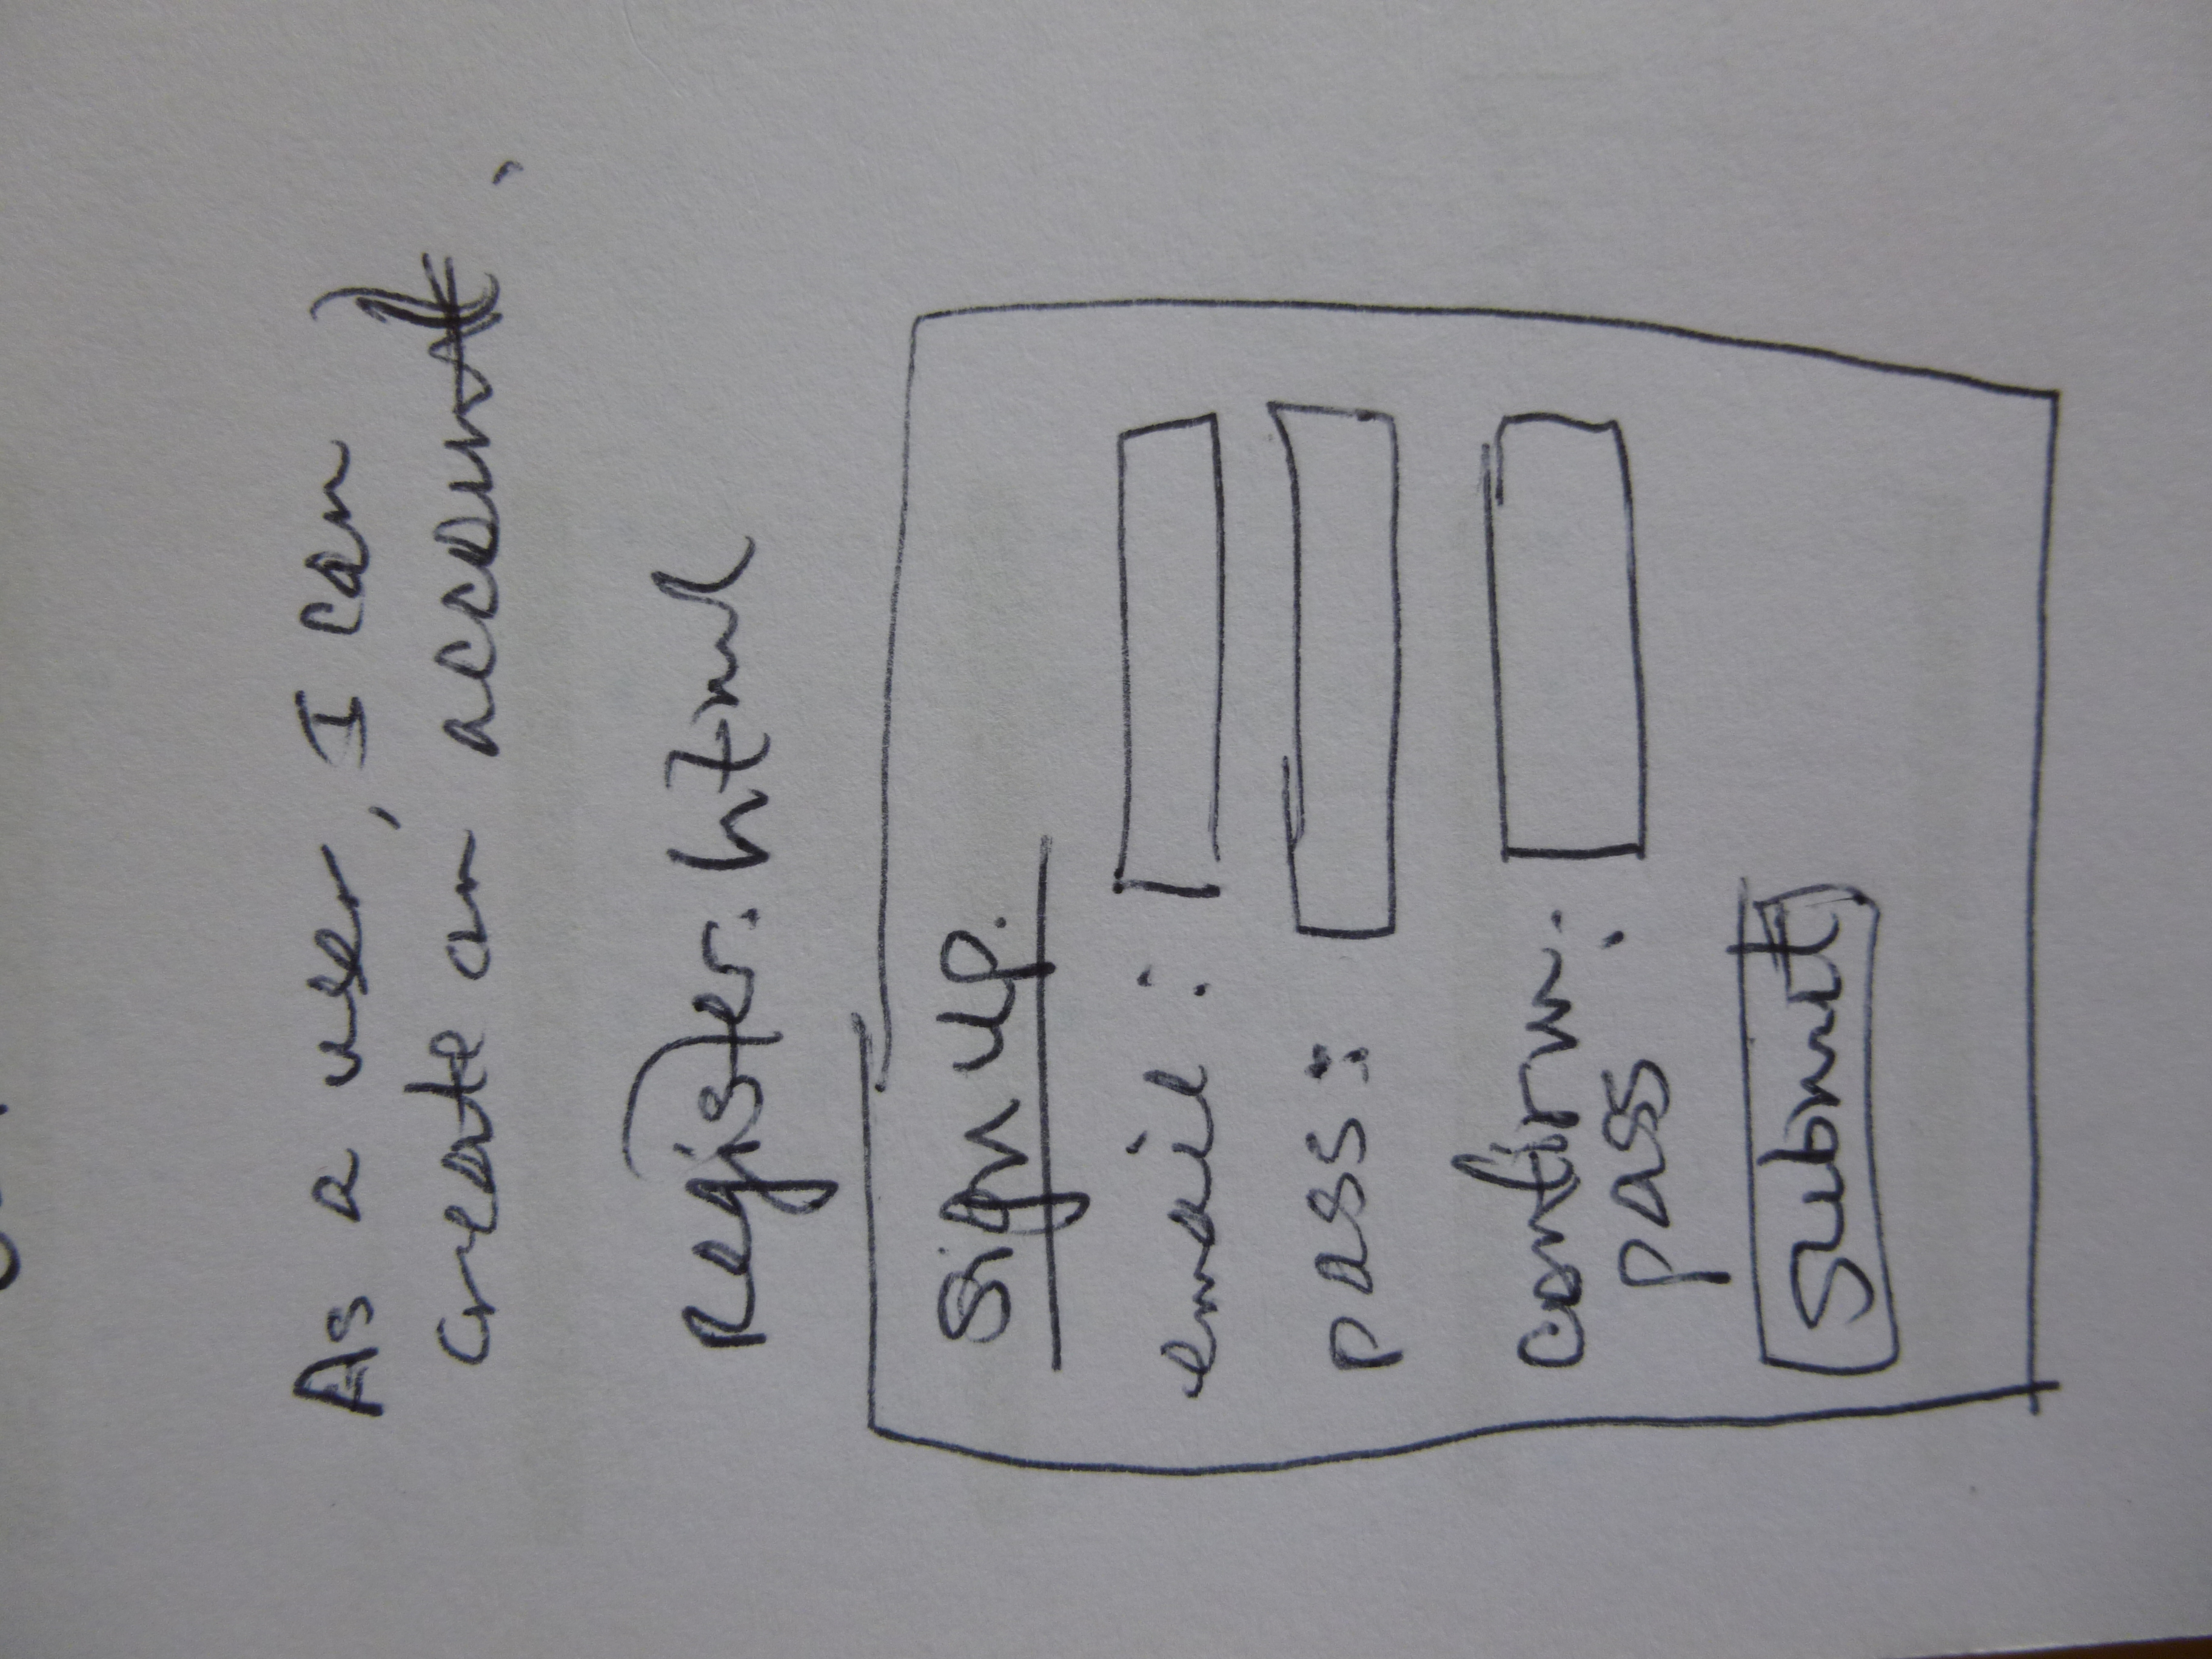 As a user, I can
create an account.
Register.html
Sign up.
email :
pass :
confirm :
pass
Submit